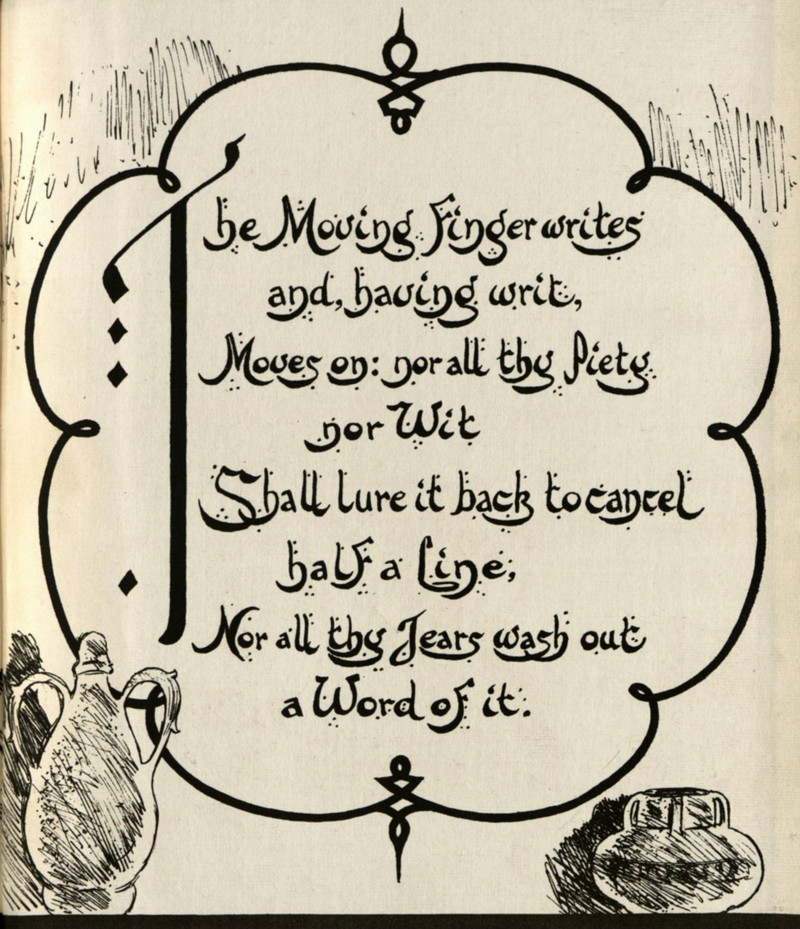 The Moving Finger writes
and, having writ,
Moves on: nor all thy Piety
nor Wit
Shall lure it back to cancel
half a Line,
Nor all thy Tears wash out
a Word of it.